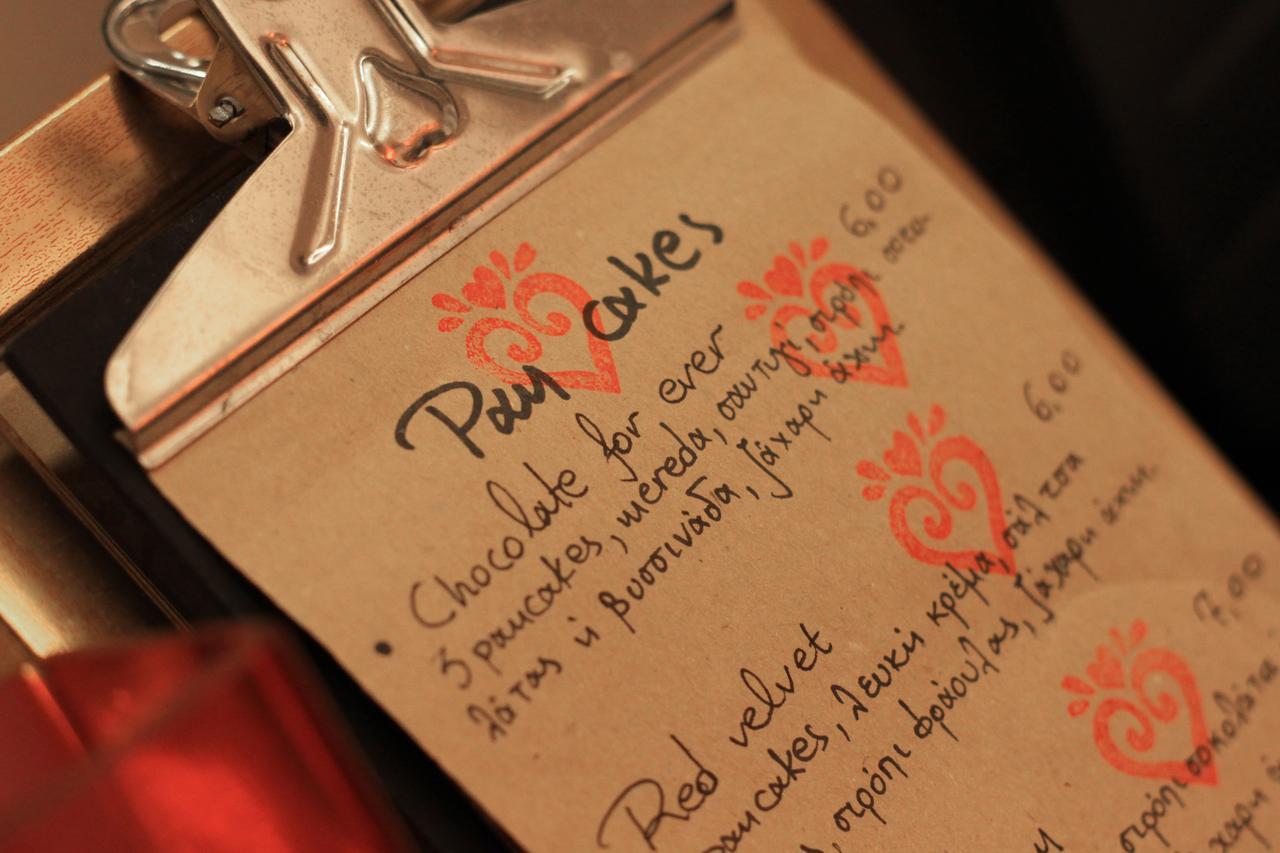 Pancakes
Chocolate for ever 6,00
3 pancakes, mereda, σαντιγί, σιρόπι σοκο
λάτας ή βυσσινάδα, ζάχαρη άχνη.
Red velvet 6,00
pancakes, λευκή κρέμα, σάλτσα
σιρόπι φράουλας, ζάχαρη άχνη.
7,00
σιρόπι σοκολάτα